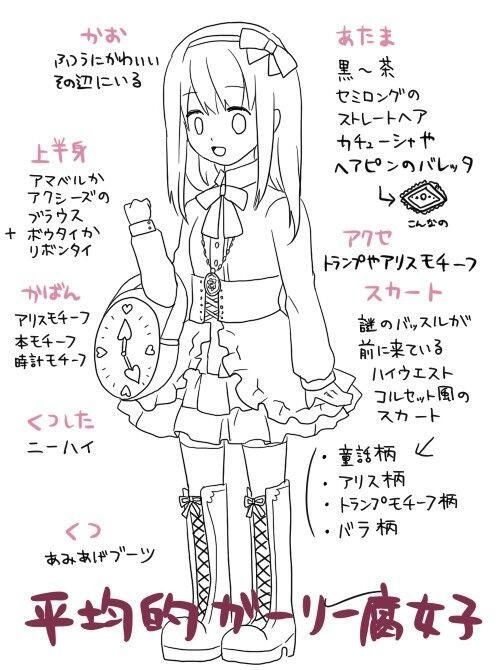 かお
ふつうにかわいい
その辺にいる
あたま
黒〜茶
セミロングの
ストレートヘア
カチューシャや
ヘアピンのバレッタ
こんなの
上半身
アマベルか
アクシーズの
ブラウス
+ボウタイか
リボンタイ
アクセ
トランプやアリスモチーフ
かばん
アリスモチーフ
本モチーフ
時計モチーフ
スカート
謎のバッスルが
前に来ている
ハイウエスト
コルセット風の
スカート
・童話柄
・アリス柄
・トランプモチーフ柄
・バラ柄
くつした
ニーハイ
くつ
あみあげブーツ
平均的ガーリー腐女子